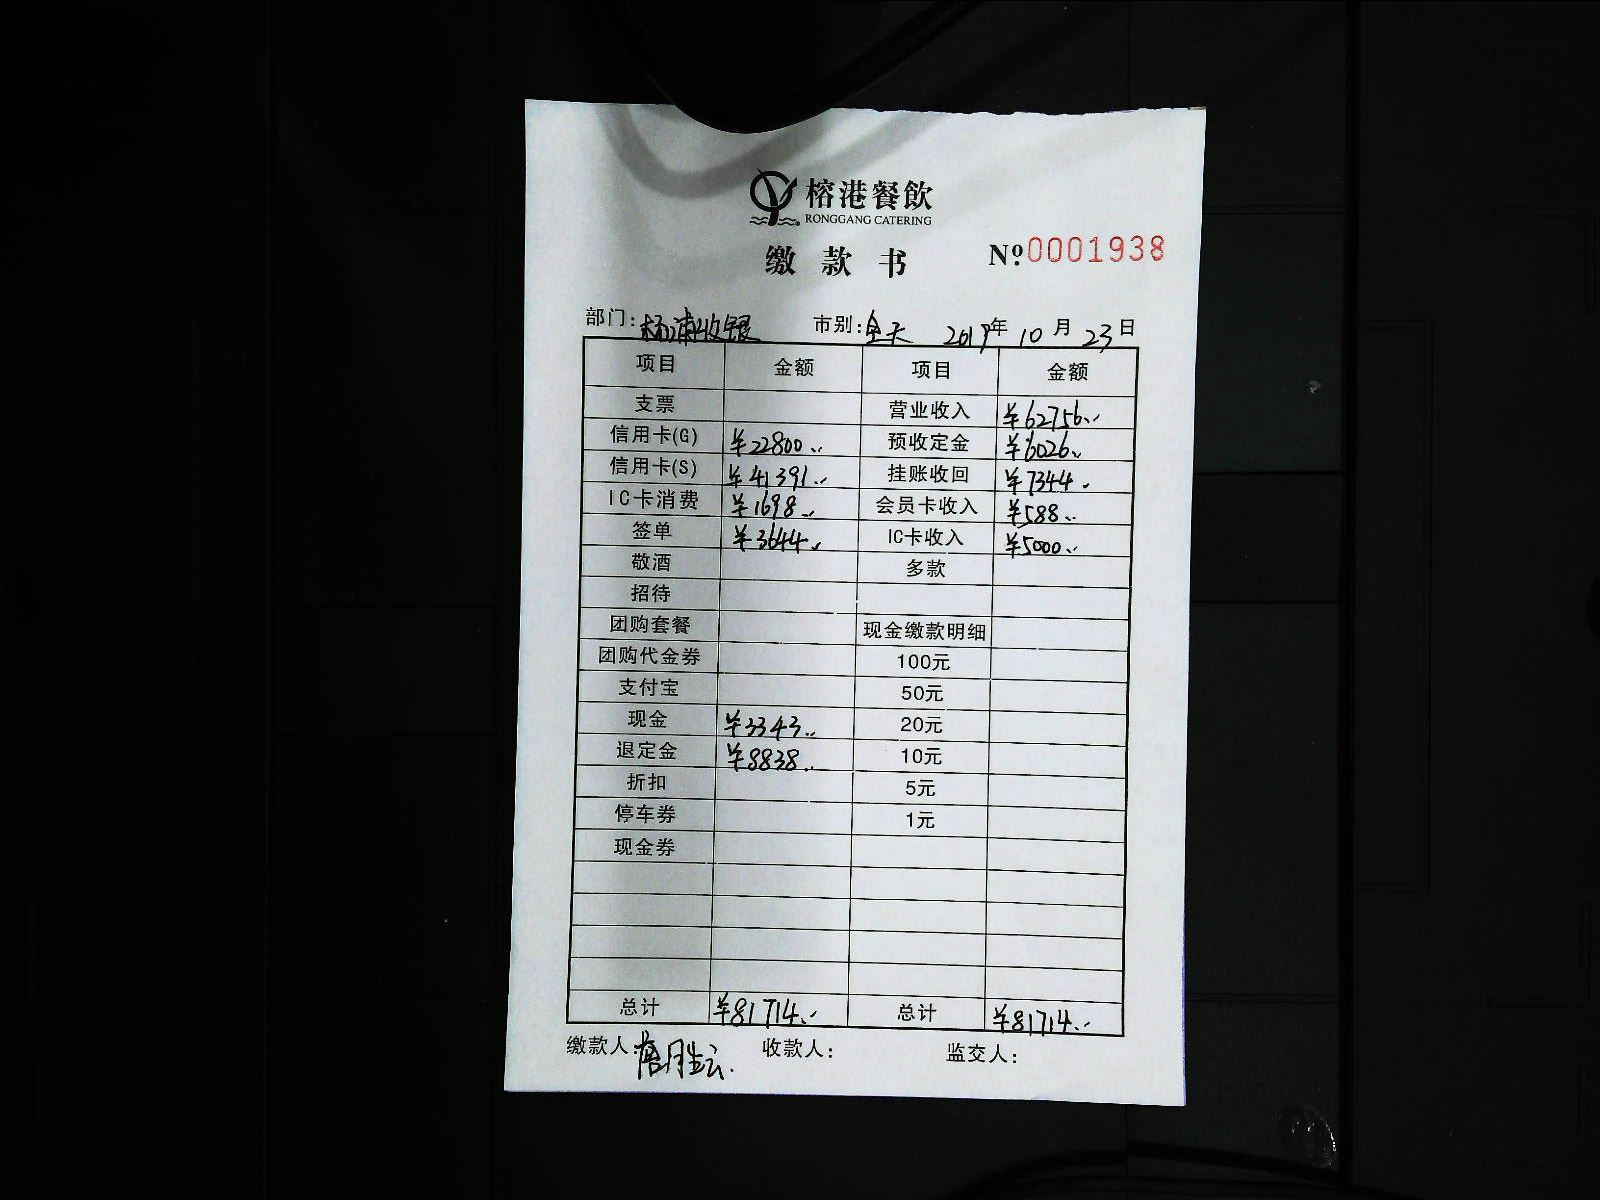 榕港餐飲
RONGGANG CATERING
缴款书 №0001938
部门:杨浦收银 市别:全天 2019年10月23日
项目 金额 项目 金额
支票 营业收入 ¥62756.
信用卡(G) ¥22800. 预收定金 ¥6026.
信用卡(S) ¥41391. 挂账收回 ¥7344.
IC卡消费 ¥1698. 会员卡收入 ¥588.
签单 ¥3644. IC卡收入 ¥5000.
敬酒 多款
招待
团购套餐 现金缴款明细
团购代金券 100元
支付宝 50元
现金 ¥3343. 20元
退定金 ¥8838. 10元
折扣 5元
停车券 1元
现金券
总计 ¥81714. 总计 ¥81714.
缴款人: 胜云 收款人: 监交人: